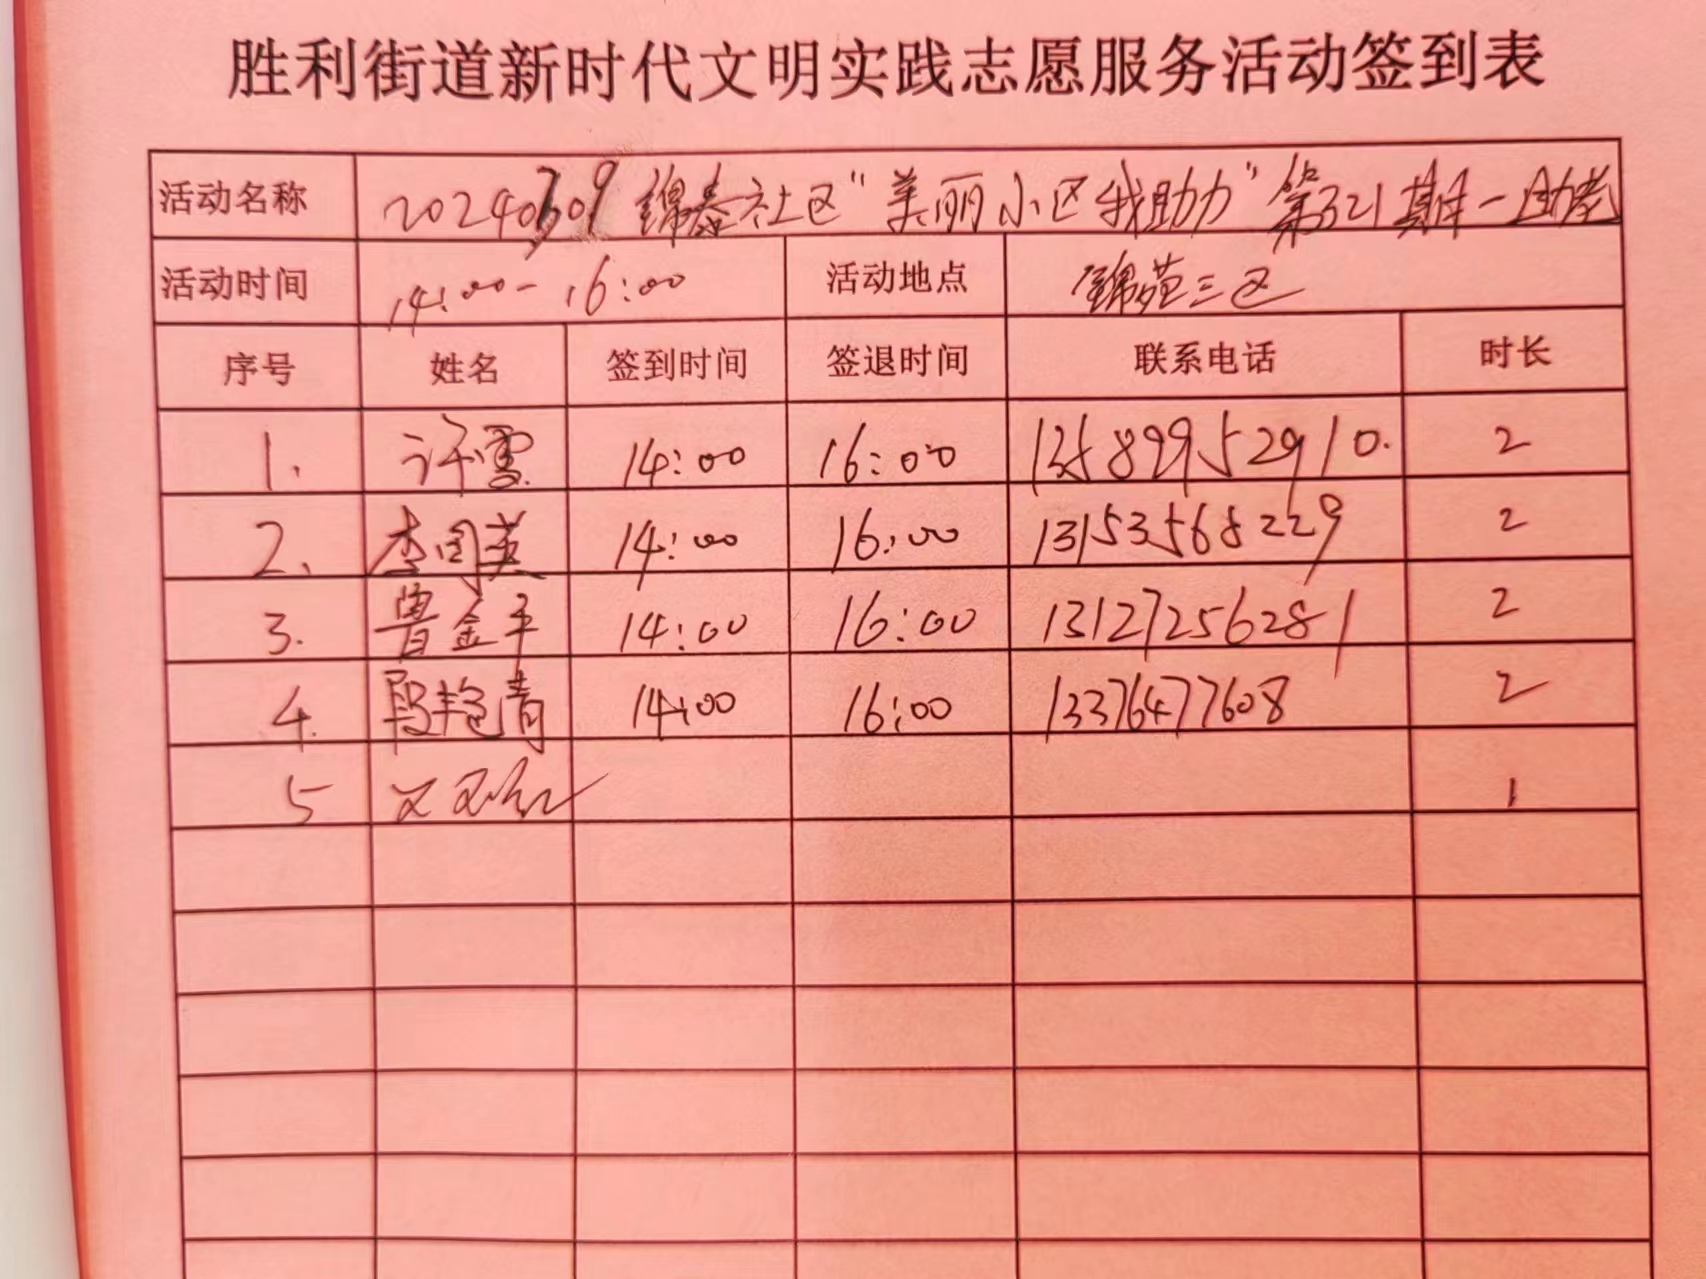 胜利街道新时代文明实践志愿服务活动签到表
活动名称 锦泰社区“美丽小区我助力”第321期—助老
活动时间 14:00-16:00 活动地点 锦苑三区
序号 姓名 签到时间 签退时间 联系电话 时长
1. 许雪 14:00 16:00 13589952910. 2
2. 李国英 14:00 16:00 13153568229 2
3. 曾金平 14:00 16:00 13127256281 2
4. 段艳青 14:00 16:00 13376477608 2
5 1